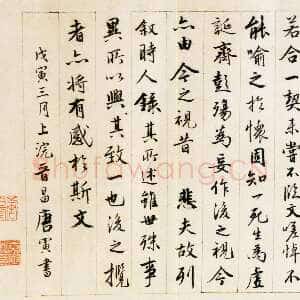 若合一契未嘗不臨文嗟悼不
能喻之於懷固知一死生為虛
誕齊彭殤為妄作後之視今
亦由今之視昔 悲夫故列
叙時人錄其所述雖世殊事
異所以興其致一也後之攬
者亦將有感於斯文
戊寅三月上浣晉昌唐寅書